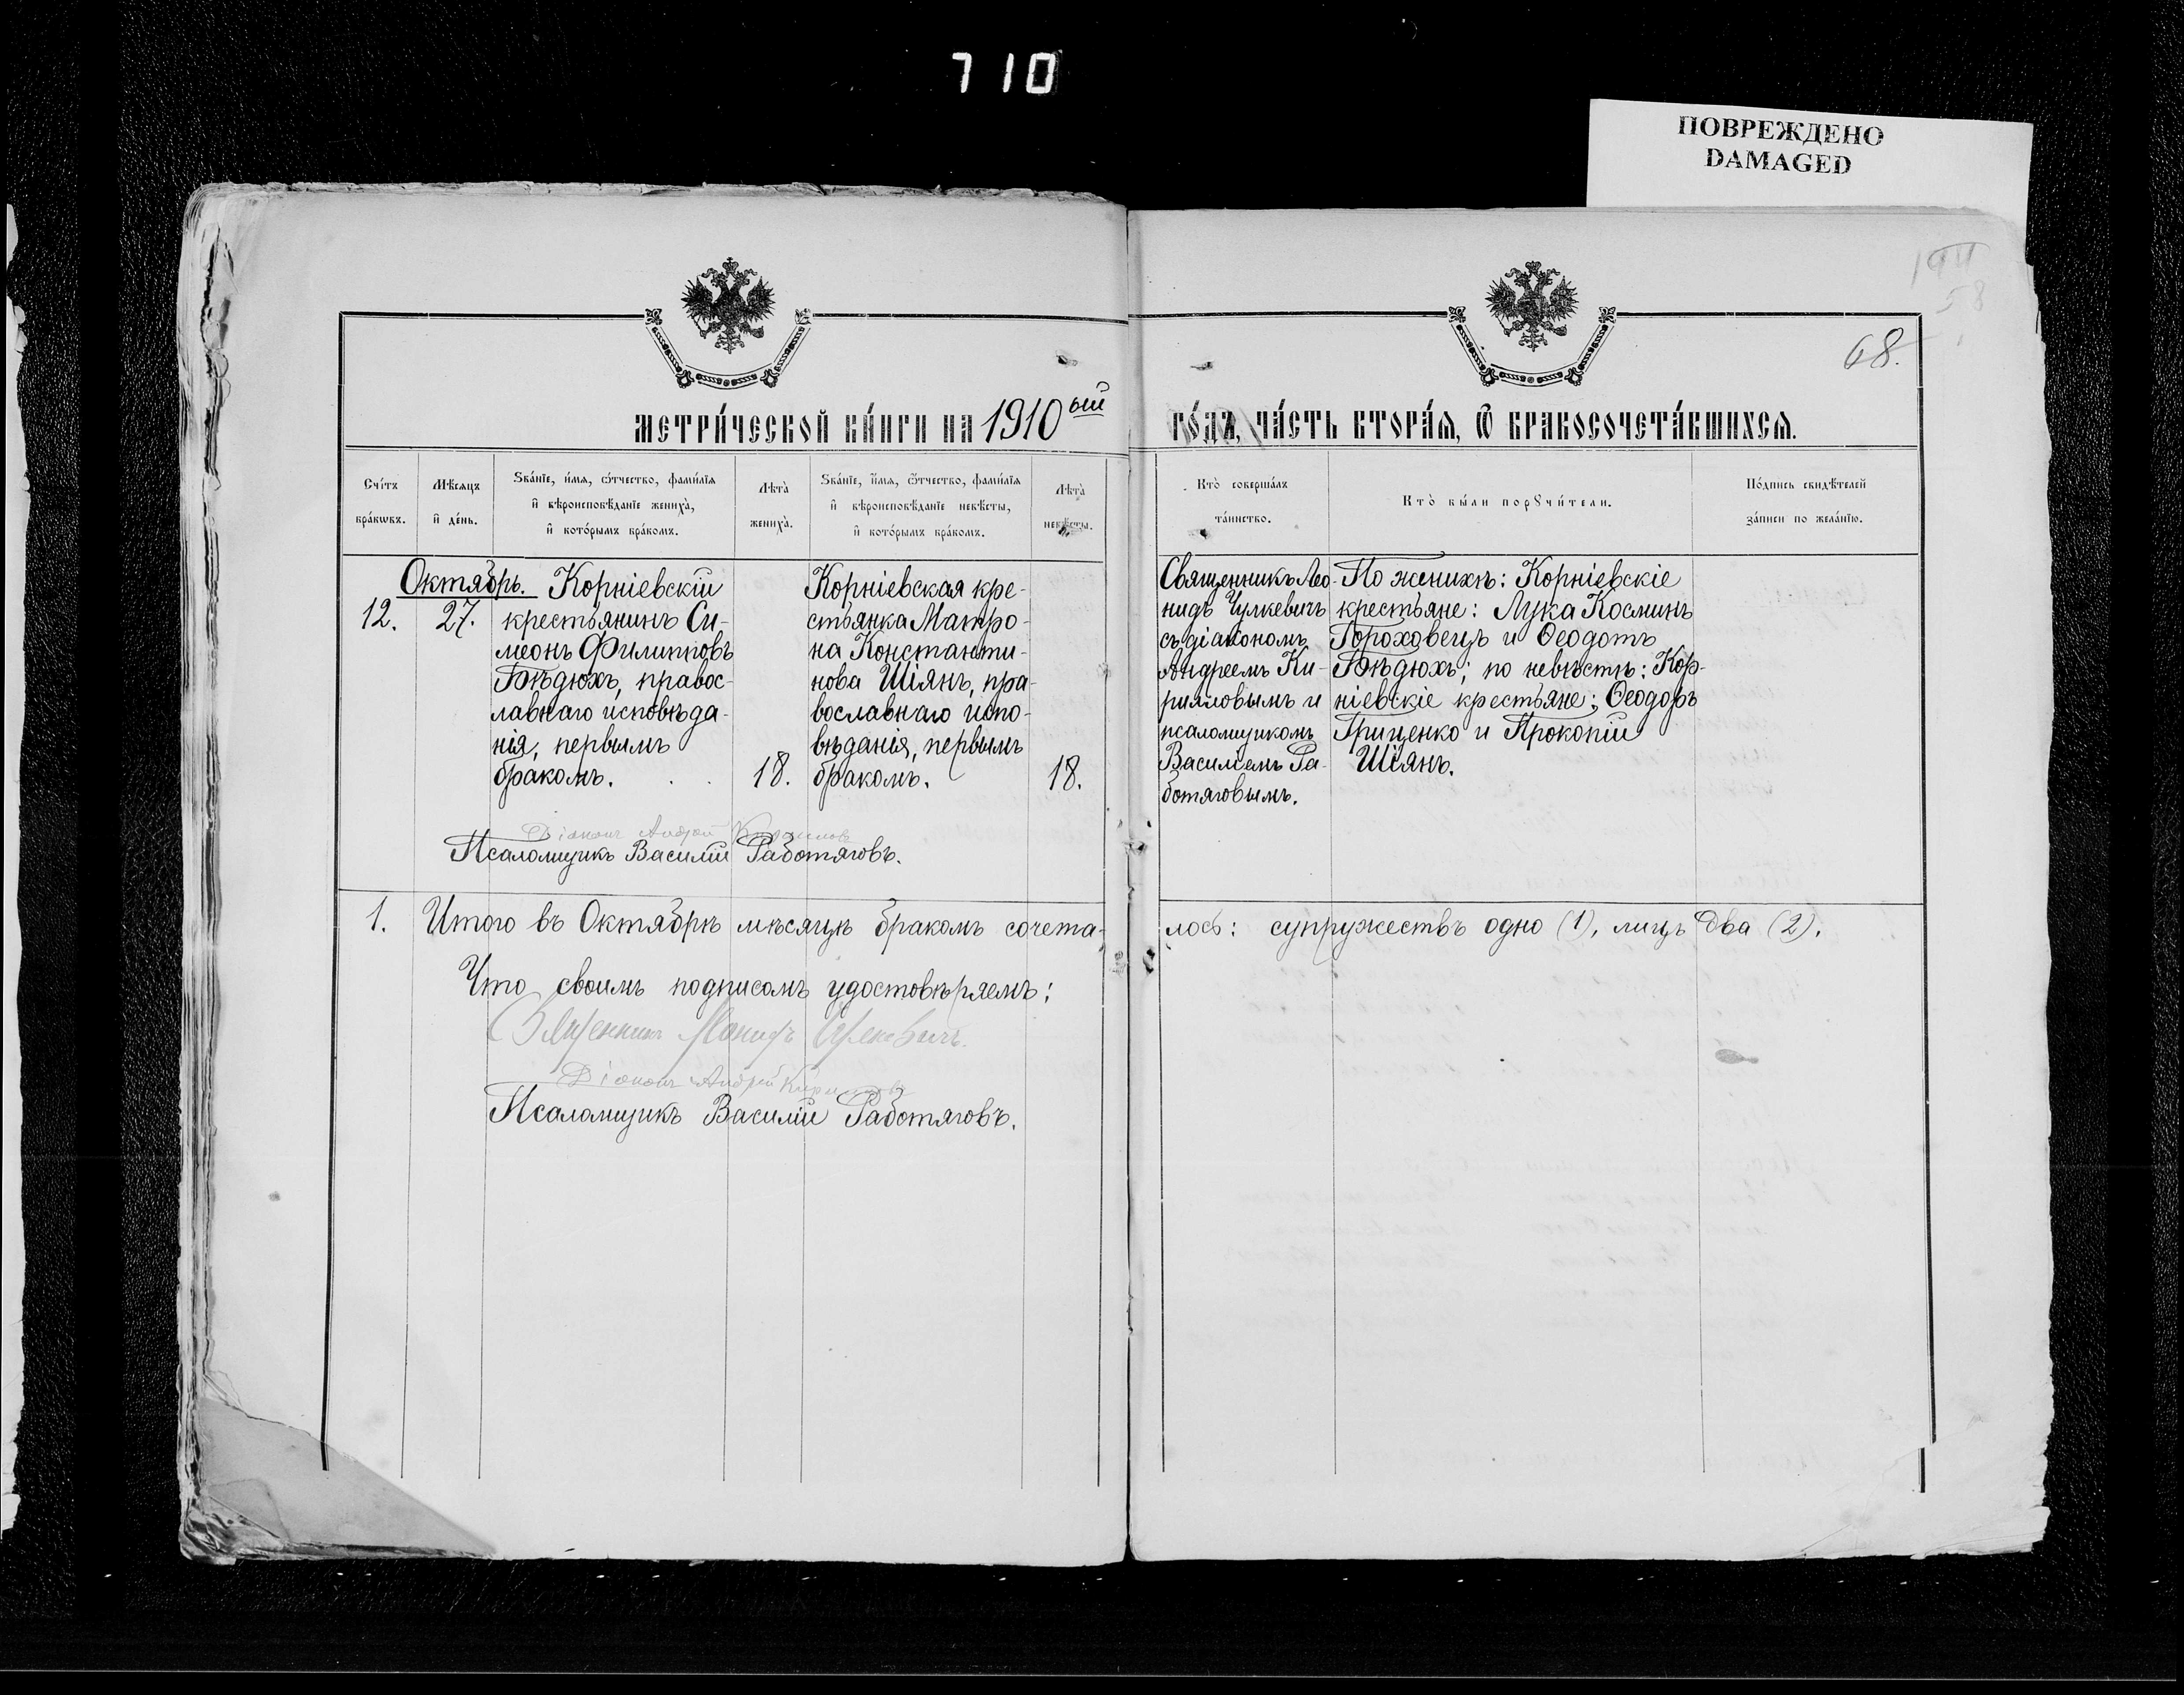 710
ПОВРЕЖДЕНО
DAMAGED
68.
метри́ческой кни́ги на 1910 ый
го́дъ, ча́сть втора́я, ѡ҆ бракосочета́вшихся.
Сче́тъ бра́кѡвъ.
Мѣ́сяцъ и҆ де́нь.
Ѕва́нїе, и҆́мя, ѻ҆́тчество, фами́лїя
и҆ вѣроисповѣ́данїе жениха̀,
и҆ кото́рымъ бра́комъ.
Лѣта̀ жениха̀.
Ѕва́нїе, и҆́мя, ѻ҆́тчество, фами́лїя
и҆ вѣроисповѣ́данїе невѣ́сты,
и҆ кото́рымъ бра́комъ.
Лѣта̀ невѣ́сты.
Кто̀ соверша́лъ
та́инство.
Кто̀ бы́ли порꙋчи́тели.
По́дпись свидѣ́телей
за́писи по жела́нїю.
Октябрь.
12.
27.
Корніевскій
крестьянинъ Си-
меонъ Филипповъ
Бѣдюхъ, правос-
лавнаго исповѣда-
нія, первымъ
бракомъ.
18.
Корніевская кре-
стьянка Матро-
на Константи-
нова Шіянъ, пра-
вославнаго испо-
вѣданія, первымъ
бракомъ.
18.
Священникъ Лео-
нидъ Чулкевичъ
съ діакономъ
Андреемъ Ки-
рилловымъ и
псаломщикомъ
Василіемъ Ра-
ботяговымъ.
По женихѣ: Корніевскіе
крестьяне: Лука Косминъ
Гороховецъ и Ѳеодотъ
Бѣдюхъ; по невѣстѣ: Кор-
ніевскіе крестьяне: Ѳеодоръ
Гриценко и Прокопій
Шіянъ.
Діаконъ Андрей Кирилловъ
Псаломщикъ Василій Работяговъ.
1. Итого въ Октябрѣ мѣсяцѣ бракомъ сочета-
лось: супружествъ одно (1), лицъ два (2).
Что своимъ подписомъ удостовѣряемъ:
Священникъ Леонидъ Чулкевичъ.
Діаконъ Андрей Кирилловъ
Псаломщикъ Василій Работяговъ.